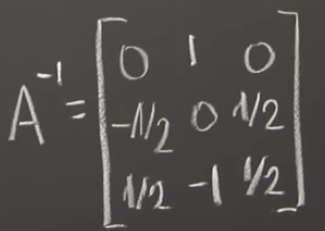 A⁻¹ = [ 0 1 0
-1/2 0 1/2
1/2 -1 1/2 ]